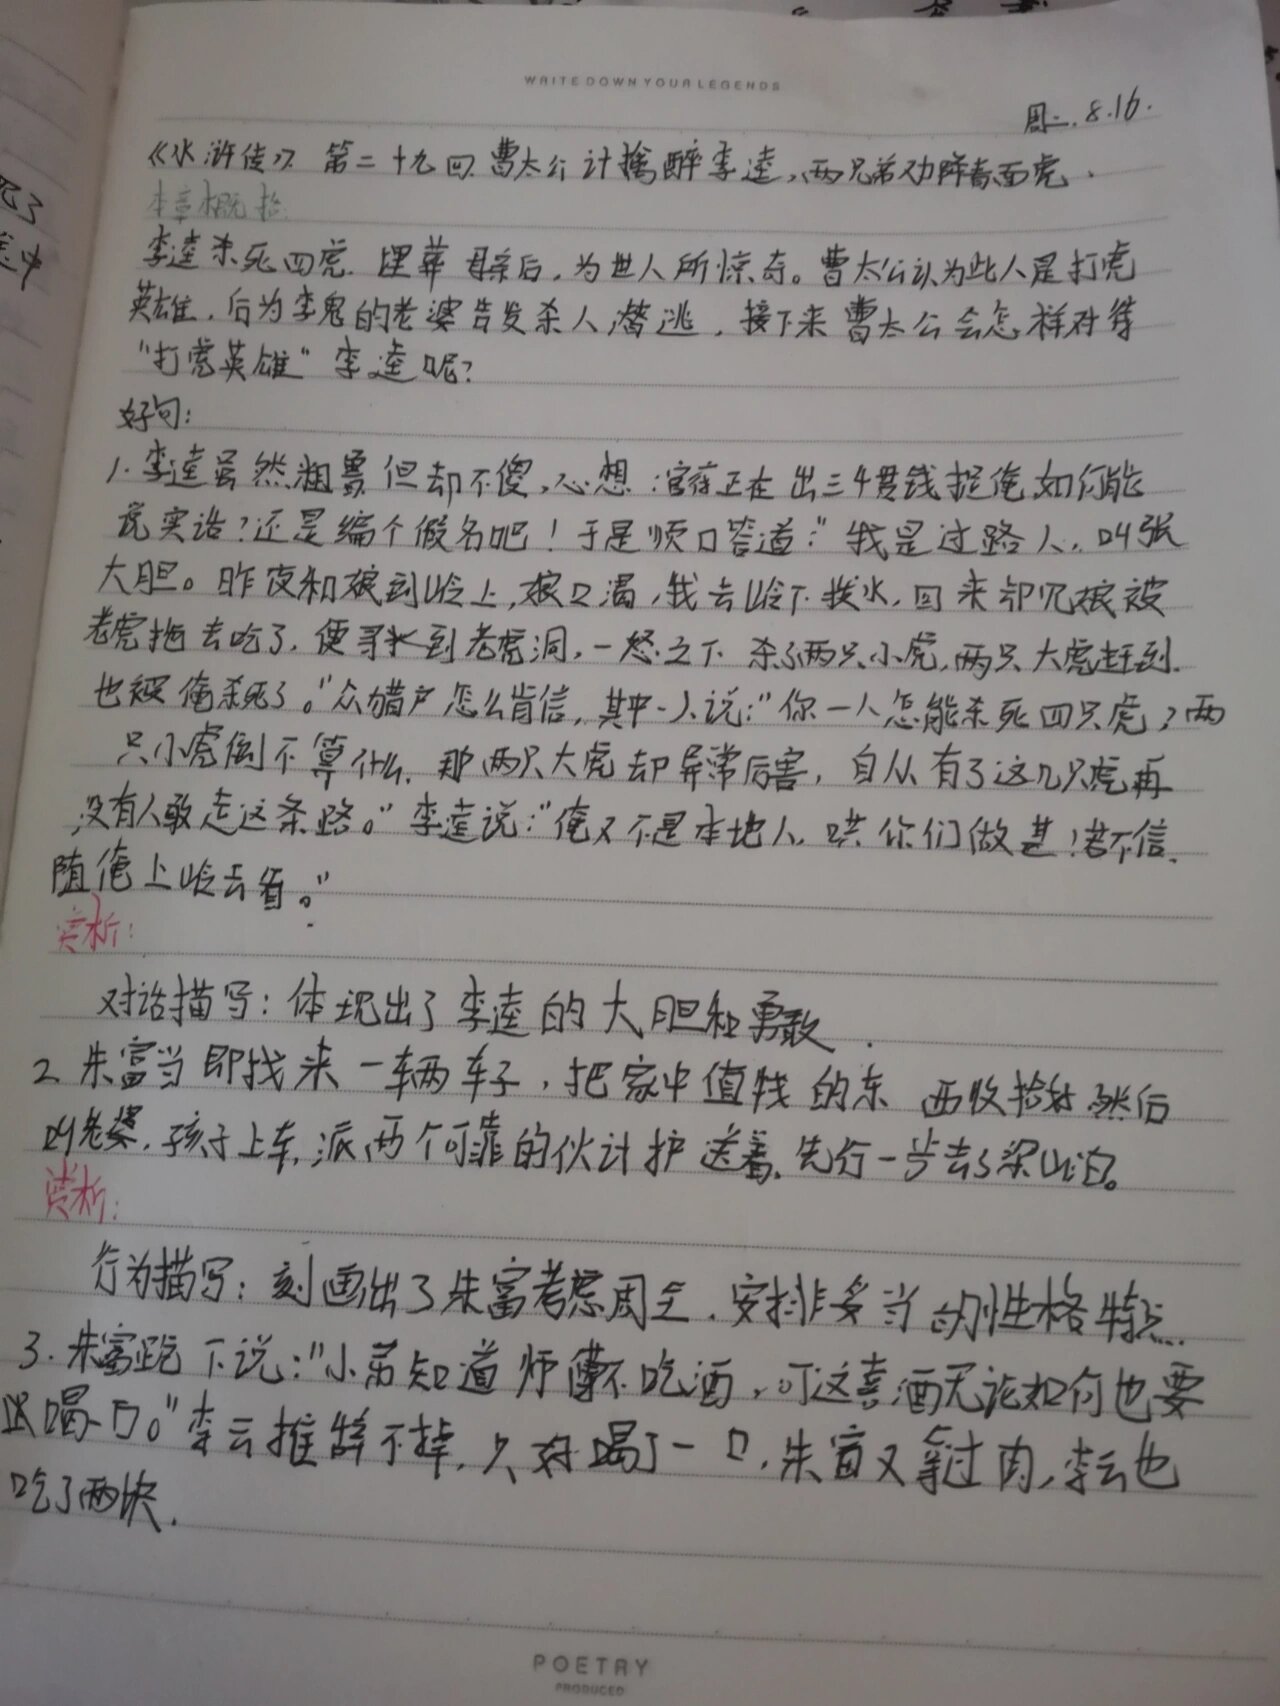 WRITE DOWN YOUR LEGENDS
周二.8.16.
《水浒传》第二十九回曹太公计擒醉李逵,两兄弟劝降青面虎.
本章概括:
李逵杀死四虎.埋葬母亲后,为世人所惊奇。曹太公认为此人是打虎
英雄,后为李鬼的老婆告发杀人潜逃,接下来曹太公会怎样对待
“打虎英雄”李逵呢?
好句:
1.李逵虽然粗鲁但却不傻,心想:官府正在出三千贯钱捉俺,如何能
说实话?还是编个假名吧!于是顺口答道:“我是过路人,叫张
大胆。昨夜和娘到岭上,娘口渴,我去岭下找水,回来却见娘被
老虎拖去吃了,便寻找到老虎洞,一怒之下杀了两只小虎,两只大虎赶到.
也被俺杀死了。”众猎户怎么肯信,其中一人说:“你一人怎能杀死四只虎?两
只小虎倒不算什么,那两只大虎却异常厉害,自从有了这几只虎再
没有人敢走这条路。”李逵说:“俺又不是本地人,哄你们做甚!若不信,
随俺上岭去看。”
赏析:
对话描写:体现出了李逵的大胆和勇敢.
2.朱富当即找来一辆车子,把家中值钱的东西收拾好,然后
叫老婆,孩子上车,派两个可靠的伙计护送着,先行一步去了梁山泊。
赏析:
行为描写:刻画出了朱富考虑周全,安排妥当的性格特点.
3.朱富跪下说:“小弟知道师傅不吃酒,可这喜酒无论如何也要
喝一口。”李云推辞不掉,只好喝了一口,朱富又拿过肉,李云也
吃了两块.
POETRY
PRODUCED